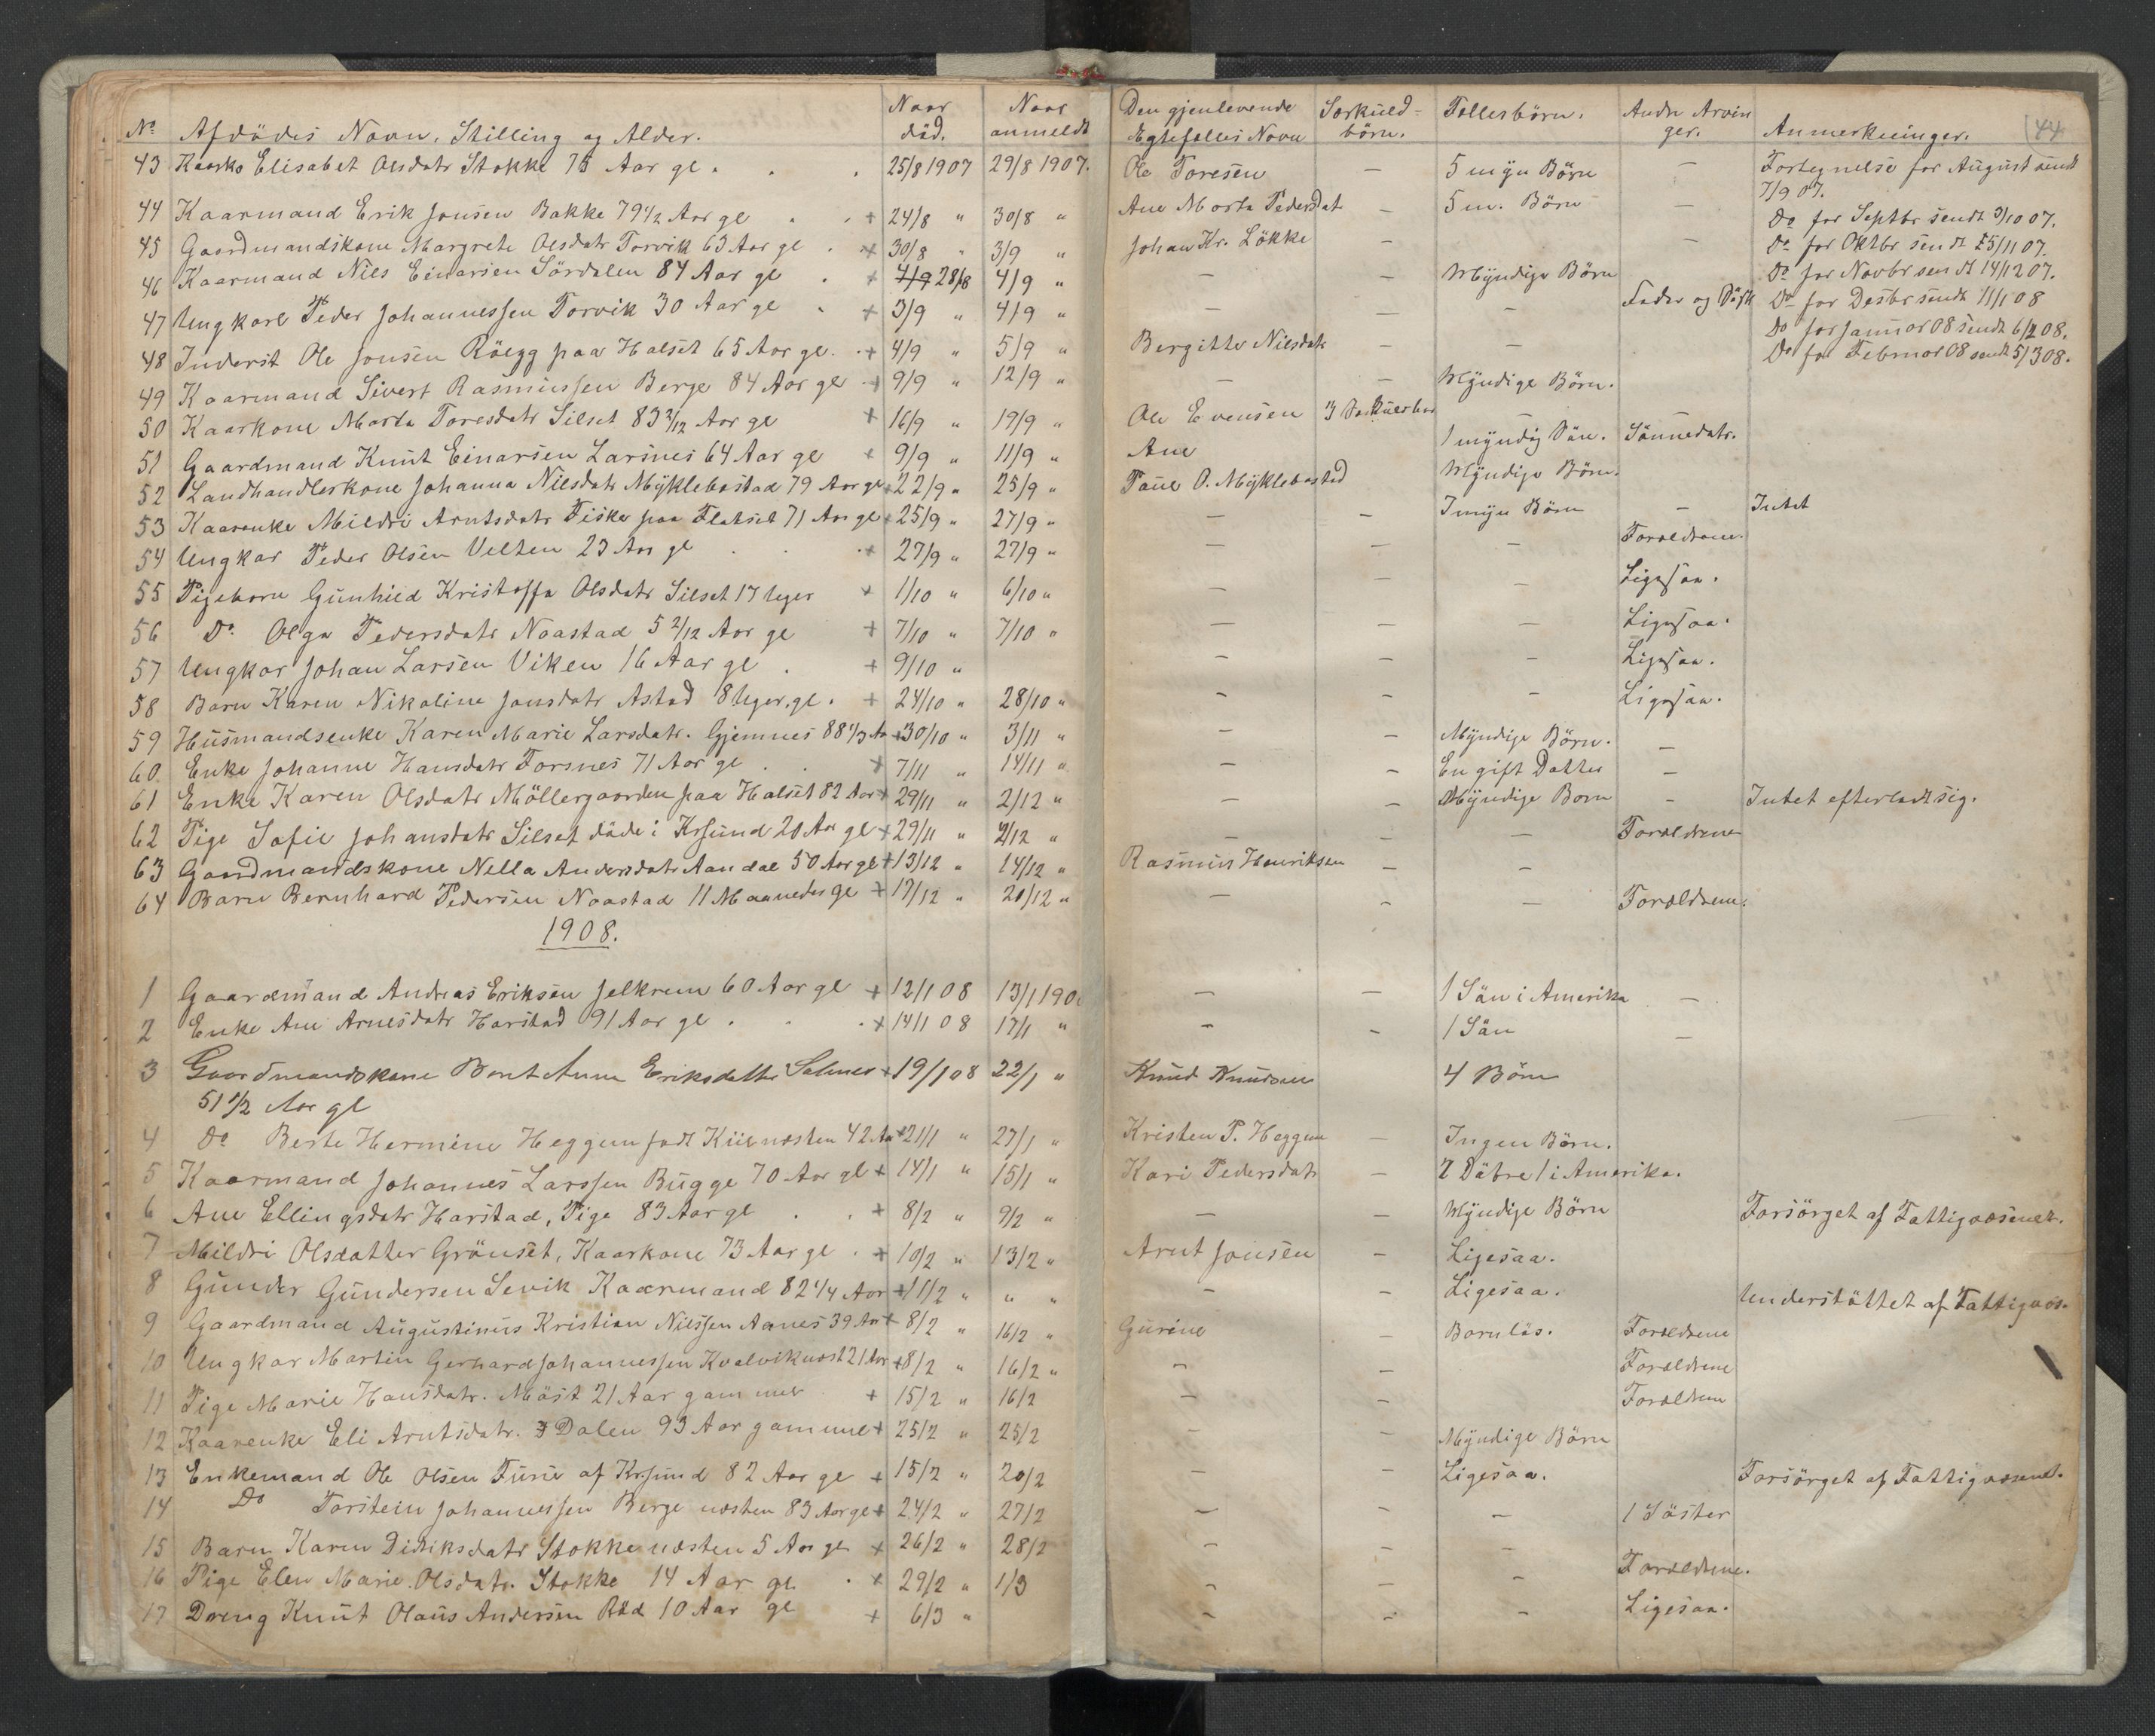 No Afdödes Navn, Stilling og Alder. Naar död. Naar anmeldt Den gjenlevende Egtefælles Navn Særkuld-börn. Fællesbörn. Andre Arvinger. Anmerkninger. 44
43 Elisabet Olsdatr Stokke 75 Aar gl. 25/8 1907 29/8 1907. Ole Toresen — 5 myn Börn — Fortegnelse for August sendt 7/9 07.
44 Kaarmand Erik Jonsen Bakke 79 1/2 Aar gl + 24/8 " 30/8 " Ane Marta Pedersdat — 5 m. Börn — Do for Septbr sendt 3/10 07.
45 Gaardmandskone Margrete Olsdatr Torvik 63 Aar gl + 30/8 " 3/9 " Johan Kr. Lökke — — Do for Oktbr sendt 5/11 07.
46 Kaarmand Nils Einarsen Sördalen 84 Aar gl + 28/8 4/9 " — — Myndige Börn Do for Novbr sendt 14/12 07.
47 Ungkarl Peder Johannessen Torvik 30 Aar gl + 3/9 " 4/9 " — — — Fader og Do for Desbr sendt 11/1 08
Do for Januar 08 sendt 6/2 08.
48 Inderst Ole Jonsen Röegg paa Halset 65 Aar gl. + 4/9 " 5/9 " Bergitte Nilsdatr — — Do for Februar 08 sendt 5/3 08.
49 Kaarmand Sivert Rasmussen Berge 84 Aar gl + 9/9 " 12/9 " — — Myndige Börn.
50 Kaarkone Marta Toresdatr Silset 83 3/12 Aar gl + 16/9 " 19/9 " Ole Evensen 3
51 Gaardmand Knut Einarsen Larsnes 64 Aar gl + 9/9 " 11/9 " Ane 1 myndig Sön. Sönnedatr.
52 Landhandlerkone Johanna Nilsdatr Myklebostad 79 Aar gl + 22/9 " 25/9 " O. Myklebostad Myndige Börn.
53 Kaarenke Mildri Arntsdatr Fiske paa Flatset 71 Aar gl + 25/9 " 27/9 " — — 7 myn Börn — Intet
54 Ungkar Peder Olsen Velten 23 Aar gl + 27/9 " 27/9 " — — — Forældrene.
55 Pigebarn Gunhild Kristoffa Olsdatr Silset 17 Uger + 1/10 " 6/10 " — — — Ligesaa.
56 Do Olga Pedersdatr Naastad 5 2/12 Aar gl + 7/10 " 7/10 " — — — Ligesaa.
57 Ungkar Johan Larsen Viken 16 Aar gl + 9/10 " — — — Ligesaa.
58 Barn Karen Nikoline Jonsdatr Astad 8 Uger gl. + 24/10 " 28/10 " — — — Ligesaa.
59 Husmandsenke Karen Marie Larsdatr. Gjemnes 88 1/3 Aa + 30/10 " 3/11 " — — Myndige Börn. —
60. Enke Johanne Hansdatr Torsnes 71 Aar gl + 7/11 " 14/11 " — — En gift Datter —
61 Enke Karen Olsdatr Möllergaarden paa Halset 82 Aar + 29/11 " 2/12 " — — Myndige Born — Intet efterladt sig.
62 Pige Sofie Johansdatr Silset döde i Krsund 20 Aar gl + 29/11 " 2/12 " — — — Forældrene
63 Gaardmandskone Nella Andersdatr Aandal 50 Aar gl + 13/12 " 14/12 " Rasmus Henriksen — —
64 Barn Bernhard Pedersen Naastad 11 Maaneder gl + 17/12 " 20/12 " — — — Forældrene.
1908.
1 Gaardmand Andreas Eriksen Jelkrem 60 Aar gl + 12/1 08 13/1 190 — — 1 Sön i Amerika —
2 Enke Ane Arnesdatr Harstad 91 Aar gl + 14/1 08 17/1 " — — 1 Sön —
3 Gaardmandskone Beret Anna Eriksdatter Solnes + 19/1 08 22/1 " Knud Knudsen 4 Börn
51 1/2 Aar gl
4 Do Berte Hermine Heggem födt næsten 42 Aar + 21/1 " 27/1 " Kristen P. Heggem — Ingen Börn.
5 Kaarmand Johannes Larssen Bugge 70 Aar gl + 14/1 " 15/1 " Kari Pedersdatr — 2 Dötre 1 i Amerika.
6 Ane Ellingsdatr Harstad, Pige 83 Aar gl + 8/2 " 9/2 " — — Myndige Börn Forsörget af Fattigvæsenet.
7 Mildri Olsdatter Grönset, Kaarkone 73 Aar gl + 10/2 " 13/2 " Arnt Jonsen — Ligesaa.
8 Gunder Gundersen Levik Kaarmand 82 1/4 Aar + 11/2 " " " — — Ligesaa. Understöttet af Fattigvæs.
9 Gaardmand Augustinus Kristian Nilssen Aanes 39 Aar + 8/2 " 16/2 " Gurine — Barnlös. Forældrene
10 Ungkar Martin Gerhard Johannessen Kvalvik næst 21 Aar + 8/2 " 16/2 " — — Forældrene
11 Pige Marie Hansdatr. Möst 21 Aar gammel + 15/2 " 16/2 — — Forældrene
12 Kaarenke Eli Arntsdatr. Dalen 93 Aar gammel + 25/2 " 25/2 — — Myndige Börn
13 Enkemand Ole Olsen Furu af Krsund 82 Aar gl + 15/2 " 20/2 — — Ligesaa. Forsörget af Fattigvæsenet.
14 Do Torstein Johannessen Berge næsten 83 Aar gl + 24/2 " 27/2 — — — 1 Söster
15 Barn Karen Didriksdatr Stokke næsten 5 Aar gl + 26/2 " 28/2 — — —
16 Pige Elen Marie Olsdatr. Stokke 14 Aar gl. + 29/2 " 1/3 — — — Forældrene.
17 Dreng Knut Olaus Andersen Röd 10 Aar gl + 6/3 " — — — Ligesaa.